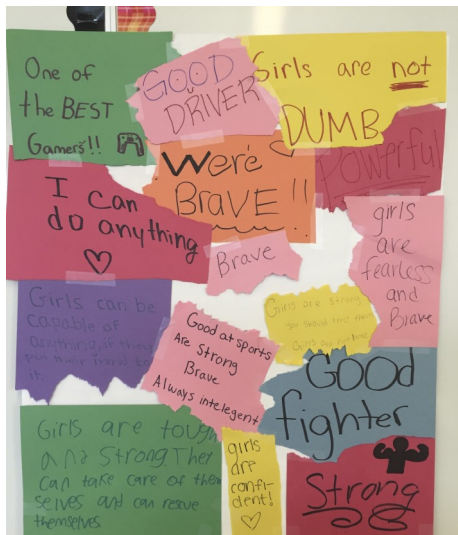 One of
the BEST
Gamers!!
GOOD
DRIVER
Girls are not
DUMB
Powerful
We're
BRAVE!!
I can
do anything
Brave
girls
are
fearless
and
Brave
Girls can be
capable of
anything, if they
put their mind to
it.
Good at sports
Are Strong
Brave
Always intelegent
Girls are strong
Girls are
GOOD
fighter
Girls are tough
and Strong. They
can take care of them
selves and can rescue
themselves
girls
are
confi-
dent!
Strong